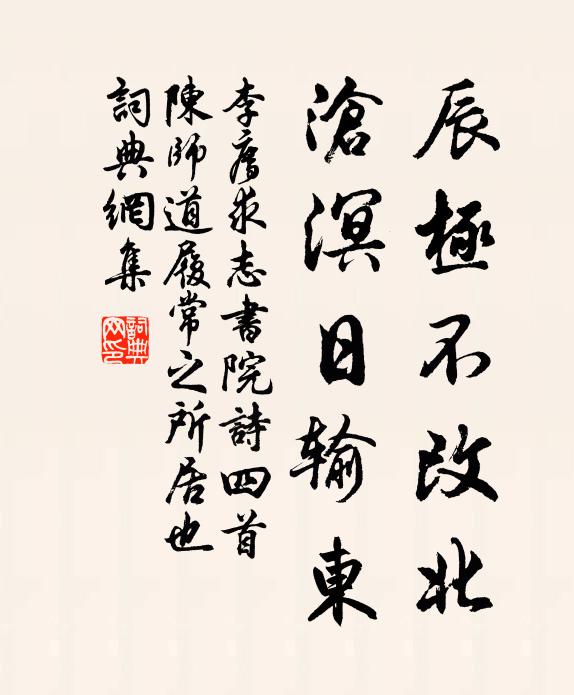 辰極不改北
滄溟日輸東
李廌求志書院詩四首
陳師道履常之所居也
詞典網集
詞典
网印